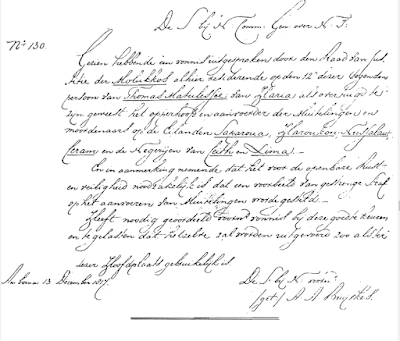 De S. bij N. Comm. Gen over N. I.
No. 130.
Gezien hebbende een vonnis uitgesproken door den Raad van Jus
titie der Molukkos alhier
persoon van Thomas Matulessia van Haria als overtuigd te
zijn geweest het opperhoofd en aanvoerder der Muitelingen en
moordenaars op de Eilanden Saparoua, Haroukou, Nusalaut
Ceram en de Negerijen van Leith en Lima.
En in aanmerking nemende dat het voor de openbare Rust
en veiligheid noodzakelijk is dat een voorbeeld van gestrenge Straf
op het aanvoeren van Muitelingen worde gesteld.
Heeft noodig geoordeeld vonnis bij deze goed te keuren
en te gelasten dat hetzelve zal worden uitgevoerd zoo als ter
dezer Hoofdplaats gebruikelijk is
Amboina 13 December 1817.
De S. bij N. voorn
(get) A A Buyskes.